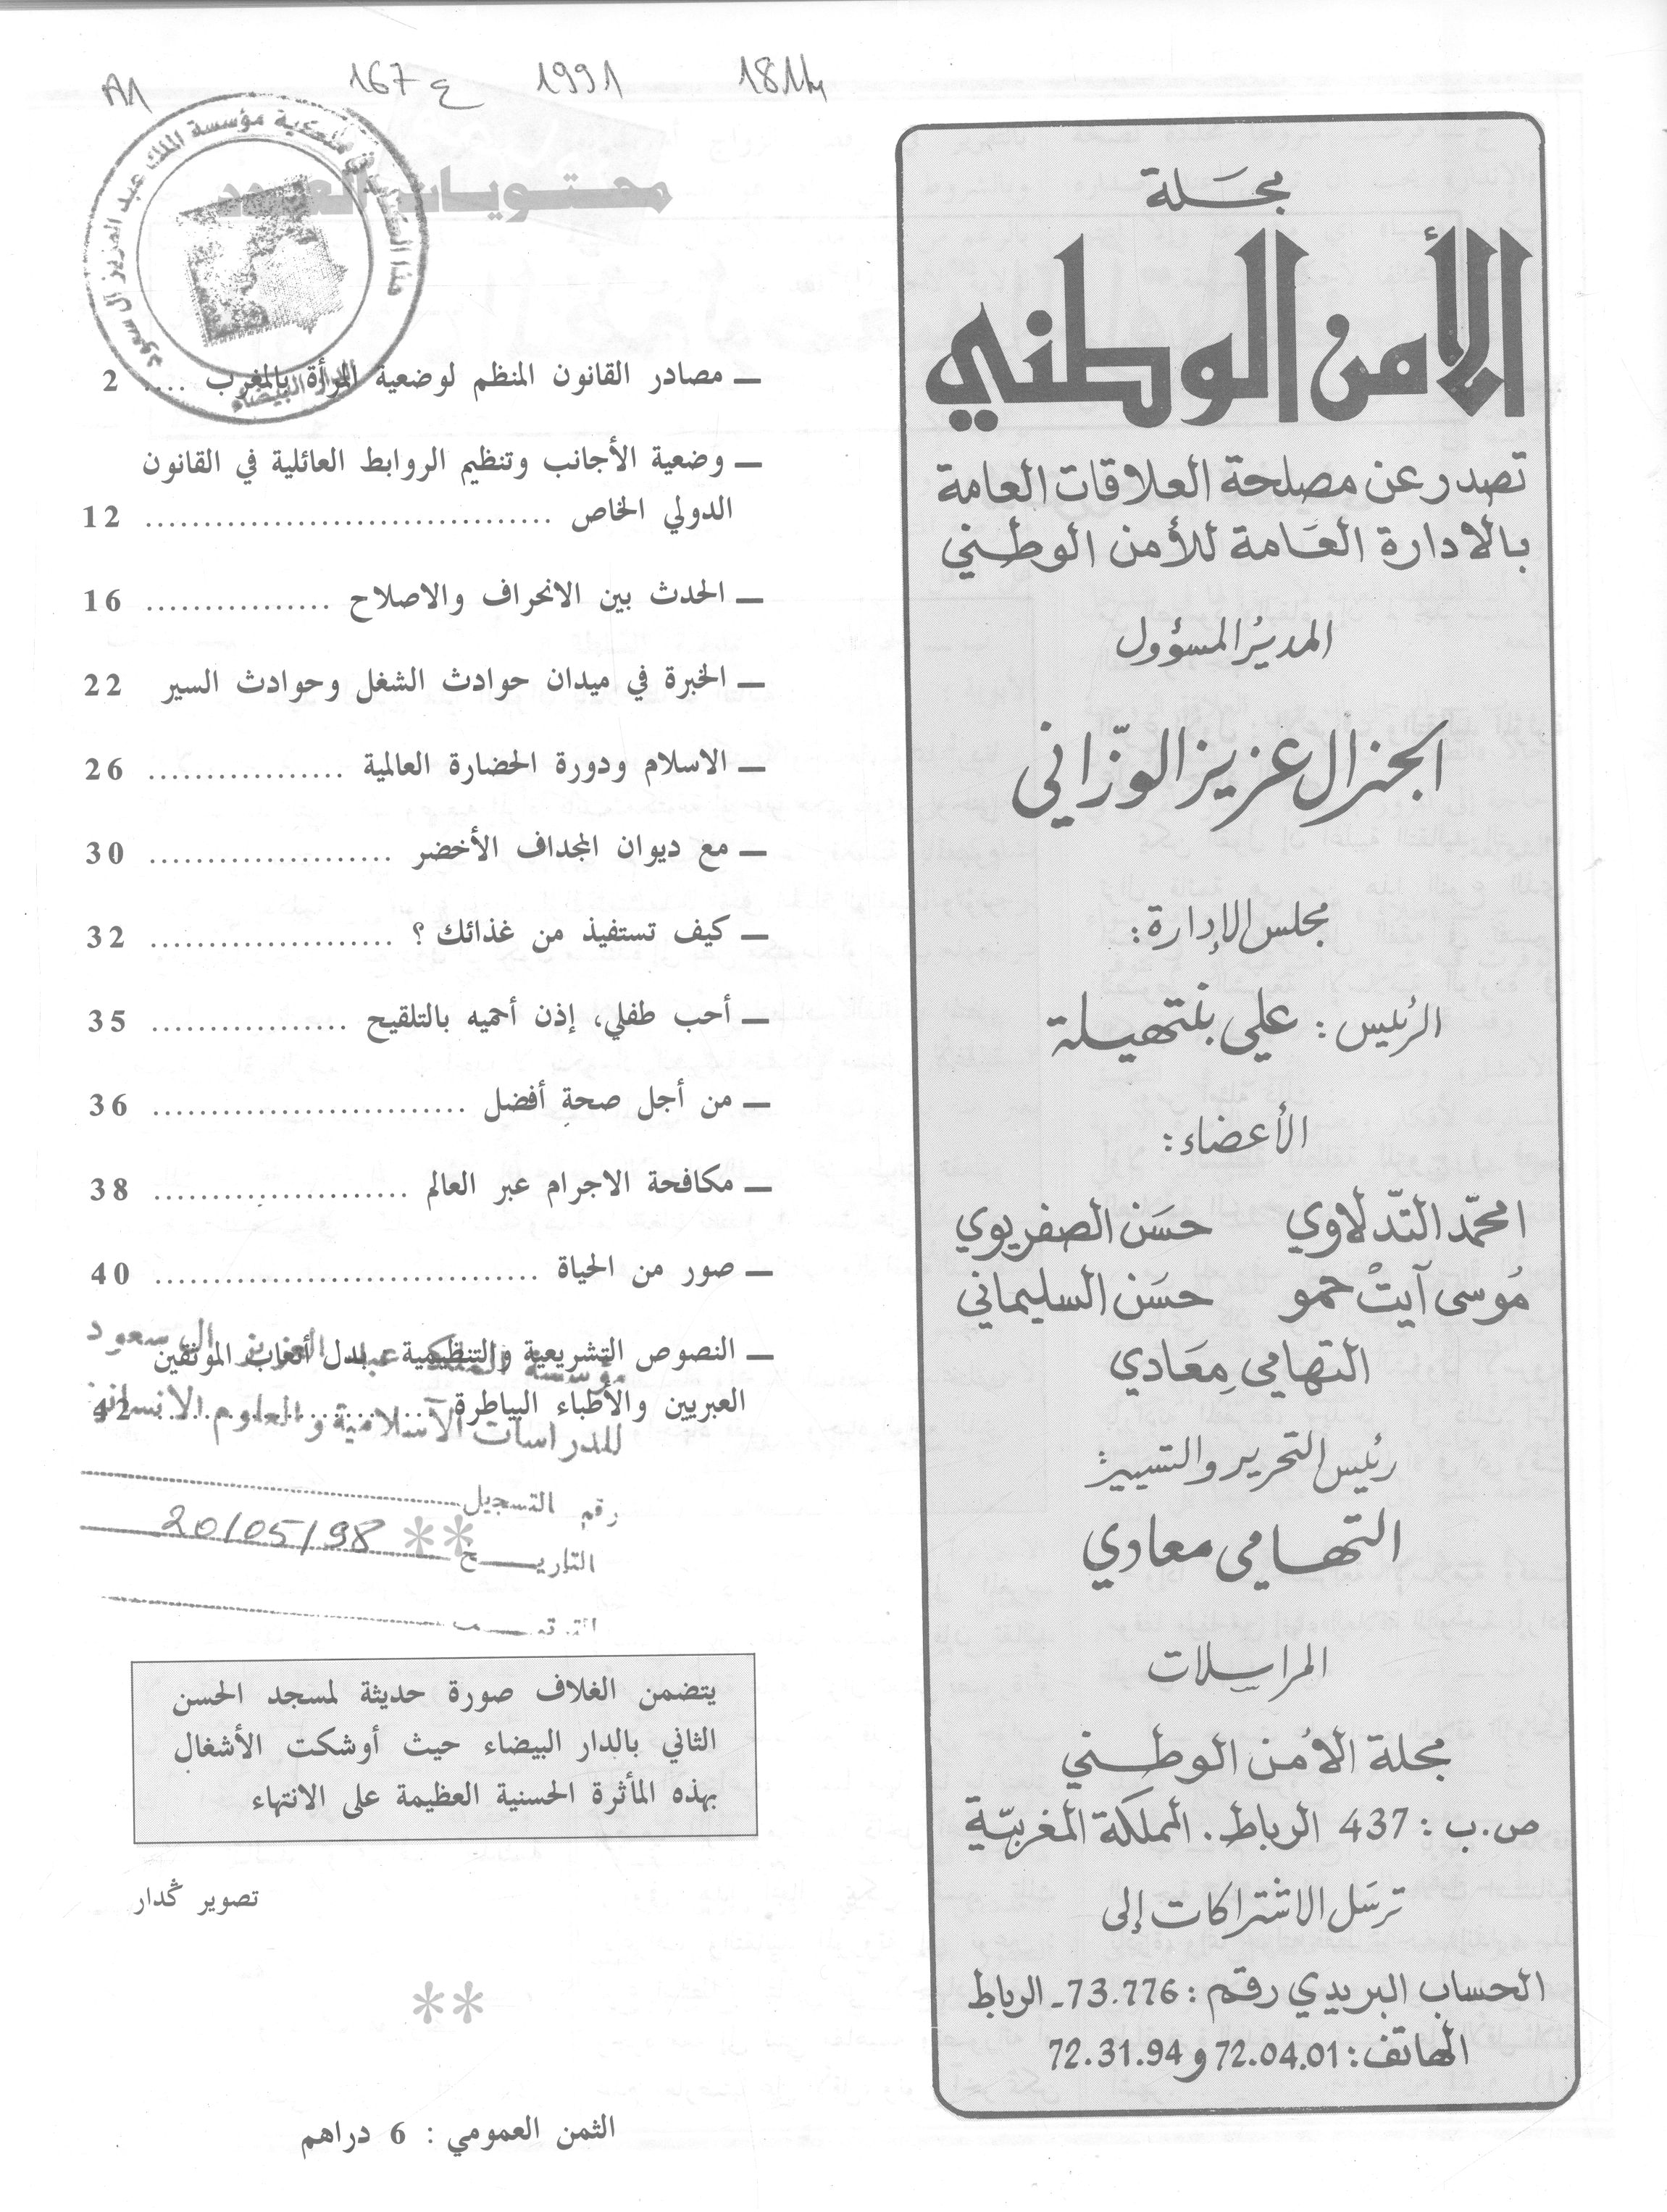 A1 167 ع 1991
مجلة
الأمن الوطني
تصدر عن مصلحة العلاقات العامة
بالادارة العامة للأمن الوطني
المدير المسؤول
الجنرال عزيز الوزّاني
مجلس الإدارة:
الرئيس: علي بنتهيلة
الأعضاء:
امحمّد التّدلاوي حسَن الصفريوي
مُوسى آيتْ حمو حسَن السليماني
التهامي معَادي
رئيس التحرير والتسيير:
التهامي معادي
المراسلات
مجلة الأمن الوطني
ص.ب: 437 الرباط. المملكة المغربيّة
ترسَل الاشتراكات إلى
الحساب البريدي رقم: 73.776 ـ الرباط
الهاتف: 72.04.01 و 72.31.94
محتويات العدد
هذا الكتاب في ملكية مؤسسة الملك عبد العزيز ال سعود
الدار البيضاء
ـ مصادر القانون المنظم لوضعية المرأة بالمغرب .... 2
ـ وضعية الأجانب وتنظيم الروابط العائلية في القانون
الدولي الخاص .................................. 12
ـ الحدث بين الانحراف والاصلاح ................ 16
ـ الخبرة في ميدان حوادث الشغل وحوادث السير 22
ـ الاسلام ودورة الحضارة العالمية ................. 26
ـ مع ديوان المجداف الأخضر ..................... 30
ـ كيف تستفيذ من غذائك ؟ ..................... 32
ـ أحب طفلي، إذن أحميه بالتلقيح ................. 35
ـ من أجل صحةِ أفضل ........................... 36
ـ مكافحة الاجرام عبر العالم ...................... 38
ـ صور من الحياة ................................. 40
ـ النصوص التشريعية والتنظيمية : بدل أتعاب الموثقين
العبريين والأطباء البياطرة ........................ 42
مؤسسة الملك عبد العزيز ال سعود
للدراسات الاسلامية و العلوم الانسانية
رقم التسجيل
التاريــخ 20/05/98
يتضمن الغلاف صورة حديثة لمسجد الحسن
الثاني بالدار البيضاء حيث أوشكت الأشغال
بهذه المأثرة الحسنية العظيمة على الانتهاء
تصوير ݣدار
الثمن العمومي : 6 دراهم